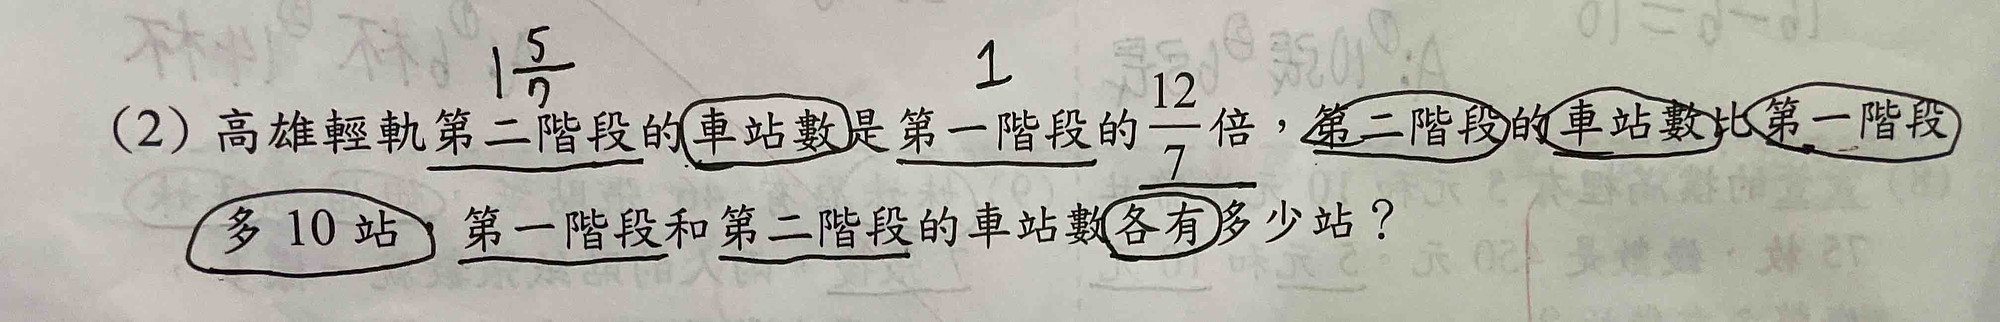 1 5/7 1
(2) 高雄輕軌第二階段的車站數是第一階段的 12/7 倍，第二階段的車站數比第一階段
多 10 站，第一階段和第二階段的車站數各有多少站？